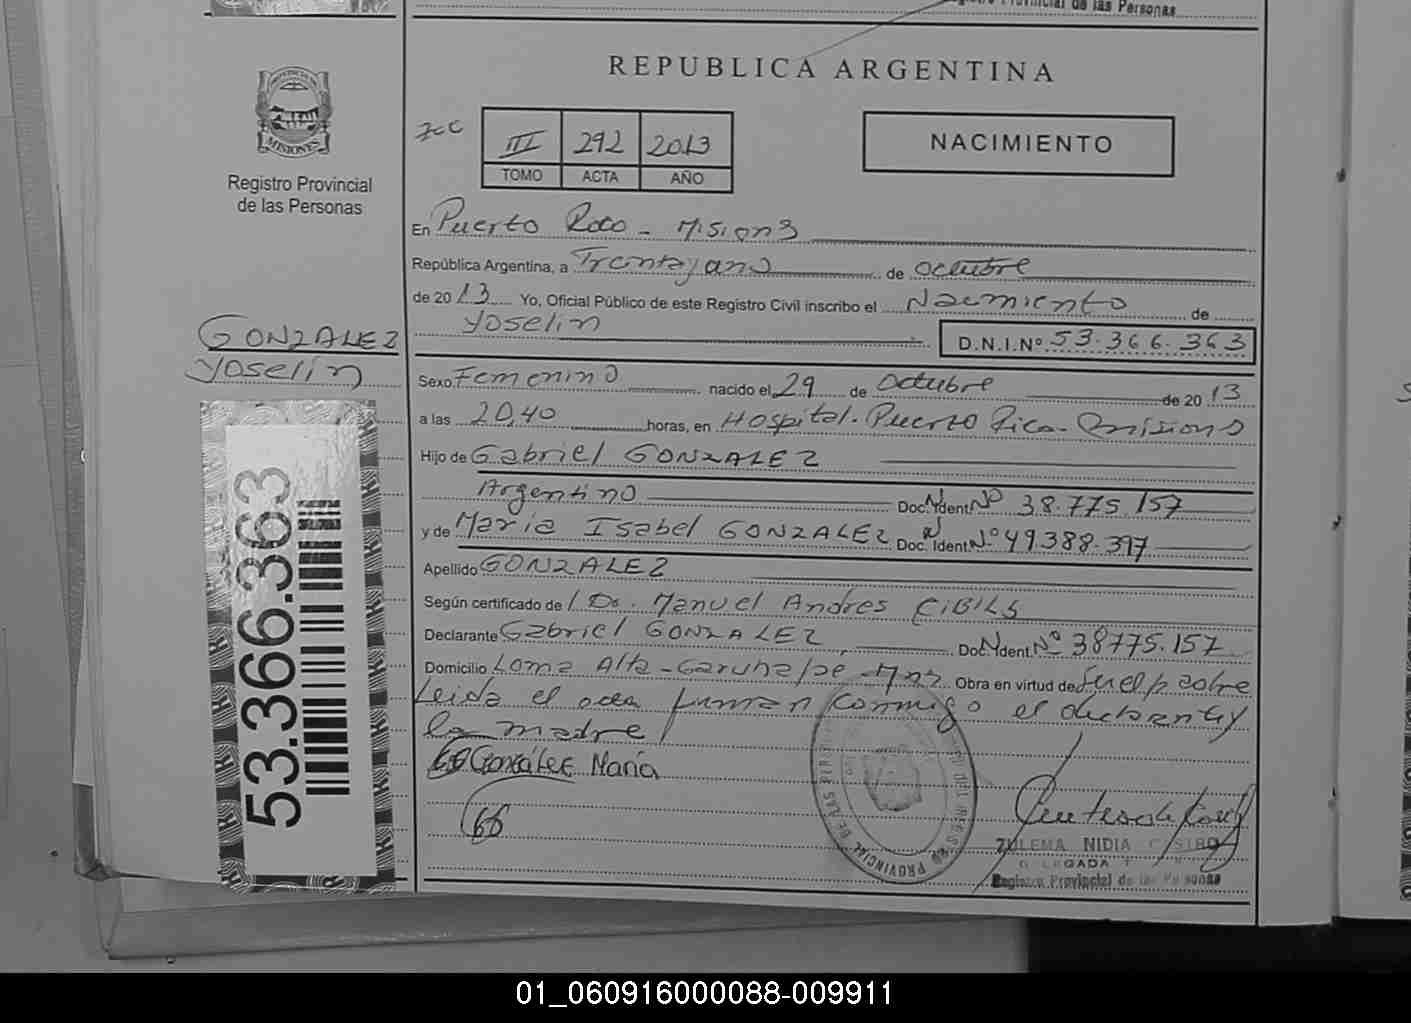 Registro Provincial de las Personas
PROVINCIA DE
MISIONES
Registro Provincial
de las Personas
REPUBLICA ARGENTINA
III 292 2013
TOMO ACTA AÑO
NACIMIENTO
En Puerto Rico - Misiones
República Argentina, a Treinta y uno de octubre
de 2013 Yo, Oficial Público de este Registro Civil inscribo el Nacimiento de
Yoselin
D.N.I.Nº 53.366.363
GONZALEZ
Yoselin
Sexo Femenino nacido el 29 de Octubre de 2013
a las 20,40 horas, en Hospital - Puerto Rico - Misiones
Hijo de Gabriel GONZALEZ
Argentino Doc. Ident. Nº 38.775.157
y de María Isabel GONZALEZ Doc. Ident. Nº 49.388.397
Apellido GONZALEZ
Según certificado de Dr. Manuel Andres CIBILS
Declarante Gabriel GONZALEZ, Doc. Ident. Nº 38775.157
Domicilio Loma Alta - Garuhape - Mnes. Obra en virtud de Su el padre
Leida el acta firman conmigo el declarante y
la madre
González María
GG
53.366.363
PROVINCIAL DE LAS
ZULEMA NIDIA CASTRO
DELEGADA
Registro Provincial de las Personas
01_060916000088-009911